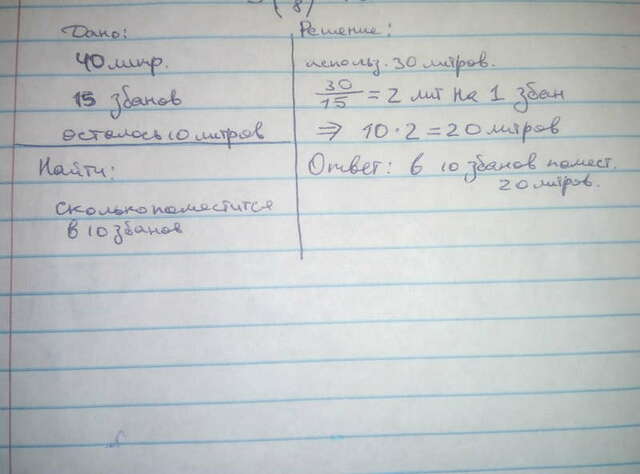 Дано:
40 литр.
15 збанов
осталось 10 литров
Найти:
сколько поместится
в 10 збанов
Решение:
использ. 30 литров.
30/15 = 2 лит на 1 збан
⇒ 10 · 2 = 20 литров
Ответ: в 10 збанов помест.
20 литров.